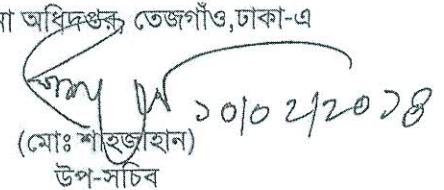 অধিদপ্তর, তেজগাঁও,ঢাকা-এ
১০/০২/২০১৪
(মোঃ শাহজাহান)
উপ-সচিব